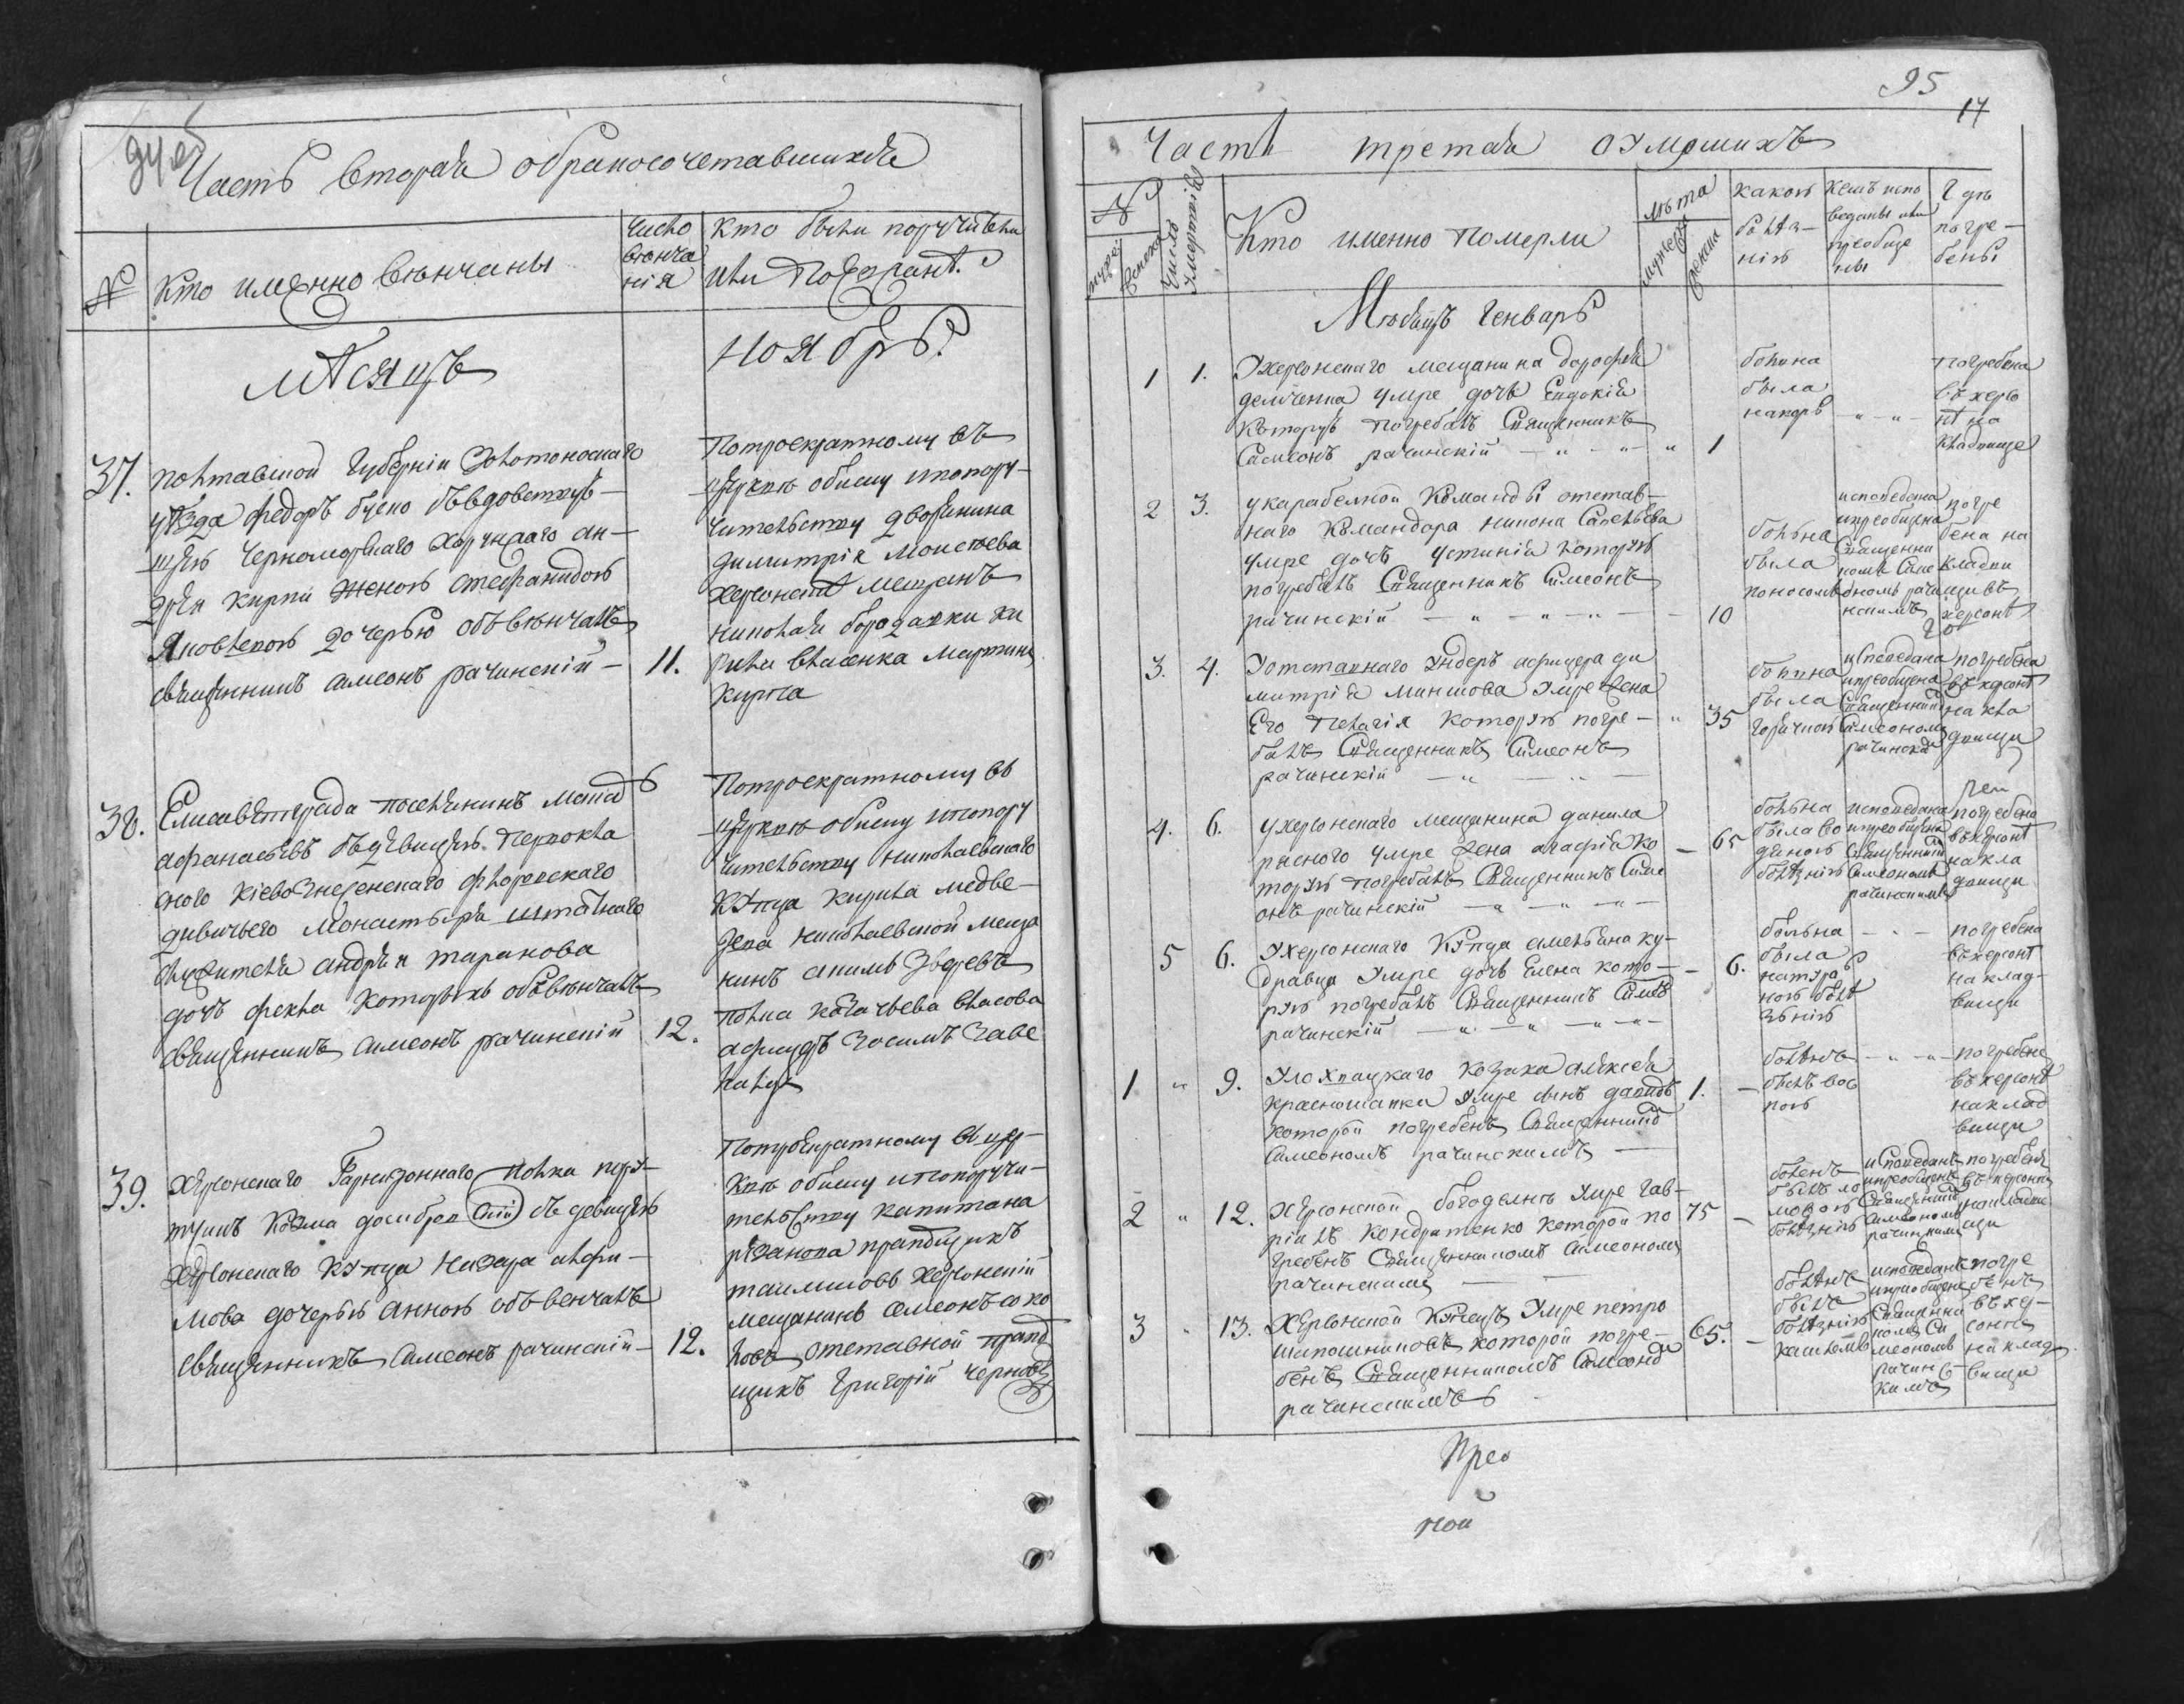 94 об
Часть вторая обракосочетавшихся
№
Кто именно венчаны
число
венча
нія
Кто были поручители
или Поезжане
мѣсяцъ
ноябрь
37. полтавской губерніи Золотоноскаго
уѣзда федоръ буено съ вдовствую
щею черноморскаго хорунжаго ан-
дрея кирпи женою стефанидою
Яновскою дочерью объвѣнчалъ
священникъ симеонъ рачинскій — 11.
Потроекратному въ
церкви обыску ипопору-
чительству дворянина
димитрія моисеева
херсонскихъ мещанъ
николая бородавки ки
рила власенка мартина
кирпа
38. Елисаветграда поселянинъ
афанасьевъ съ девицею первокла
сного кіево Знесенскаго флоровскаго
дивичьего монастыря штатнаго
служителя андрея таранова
дочь фекла которыхъ объвѣнчалъ
священникъ симеонъ рачинскій 12.
Потроекратному въ
церкви обыску ипопору
чительству николаевскаго
купца кирила медве-
дева николаевской меща
нинъ акимъ Зверевъ
полка власова
афицеръ Зосимъ Заве
39. Херсонскаго Гарнизоннаго полка пору-
тчикъ козма домбров скій съ девицею
Херсонскаго купца назара ефи-
мова дочерью анною объвенчалъ
священникъ Симеонъ рачинскій — 12.
Потроекратному въ цер-
кви обыску ипопоручи-
тельству капитана
резанова прапорщикъ
херсонскій
мещанинъ семеонъ соко
ловъ отставной прапор
щикъ Григорій черновъ
95
17
Часть третая о умершихъ
№
мужеска
женска
Число умертвія
Кто именно Померли
лѣта
мужеска
женска
какою
болез-
нію
кемъ испо
веданы или
преобще
ны
Гдѣ
погре-
бены
Месяцъ Генварь
1 1. Ухерсонскаго мещанина дорофея
демченка умре дочь Евдокія
которую погребалъ Священникъ
Самеонъ рачинскій — " — " — " 1
больна
была
накорь
" — "
погребена
въ херсо
нѣ на
кладбище
2 3. укарабелной команды отстав-
наго командора никона Савельева
умре дочь устинія которую
погребалъ Священникъ Симеонъ
рачинскій — " — " — " — 10
больна
была
поносомъ
исповедана
ипреобщена
Священни
комъ Симе
ономъ рачи
нскимъ
погре
бена на
кладби
щи въ
херсонѣ
3. 4. У отставнаго ундеръ афицера ди
митрія миншова умре жена
Его Пелагія которую погре- " 35
балъ Священникъ Симеонъ
рачинскій — " — " —
больна
была
горячкою
исповедана
ипреобщена
Священник
Симеономъ
рачинским
погребена
въ херсонѣ
на кла
дбищи
4. 6. ухерсонскаго мещанина данила
умре жена агафія ко — 65
торую погребалъ Священникъ Симе
онъ рачинскій — " — " — " —
больна
была во
дяною
болезнію
исповедана
ипреобщена
Священник
Симеономъ
рачинскимъ
погребена
въ херсонѣ
на кла
дбищи
5 6. Ухерсонскаго купца емельяна ку-
дравца умре дочь Елена кото — 6.
рую погребалъ Священникъ Симео
рачинскій — " — " — " —
больна
была
натура
ною болѣ
знію
— " —
погребена
въ херсонѣ
на клад-
бищи
1 " 9. Улохвацкаго козака алексея
красношапки умре сынъ давидъ 1. —
которой погребенъ Священник
Симеономъ рачинскимъ —
болѣнъ
былъ вос
пою
— " — " —
погребенъ
въ херсонѣ
на клад
бищи
2 " 12. Херсонской богодельнѣ умре гав-
ріилъ кондратенко которой по 75 —
гребенъ Священникомъ Симеономъ
рачинскимъ — —
боленъ
былъ
болезнію
исповеданъ
ипреобщенъ
Священник
Симеономъ
рачинским
погребенъ
въ херсонѣ
на кладби
щи
3 " 13. Херсонской купецъ умре петро
шапошниковъ которой погре- 65. —
бенъ Священникомъ Симеоном
рачинскимъ
болѣнъ
былъ
болезнію
кашлемъ
исповеданъ
ипреобщенъ
Священни
комъ Си
меономъ
рачинс
кимъ
погре
бенъ
въ хер-
сонѣ
на клад
бищи
Прео
ной